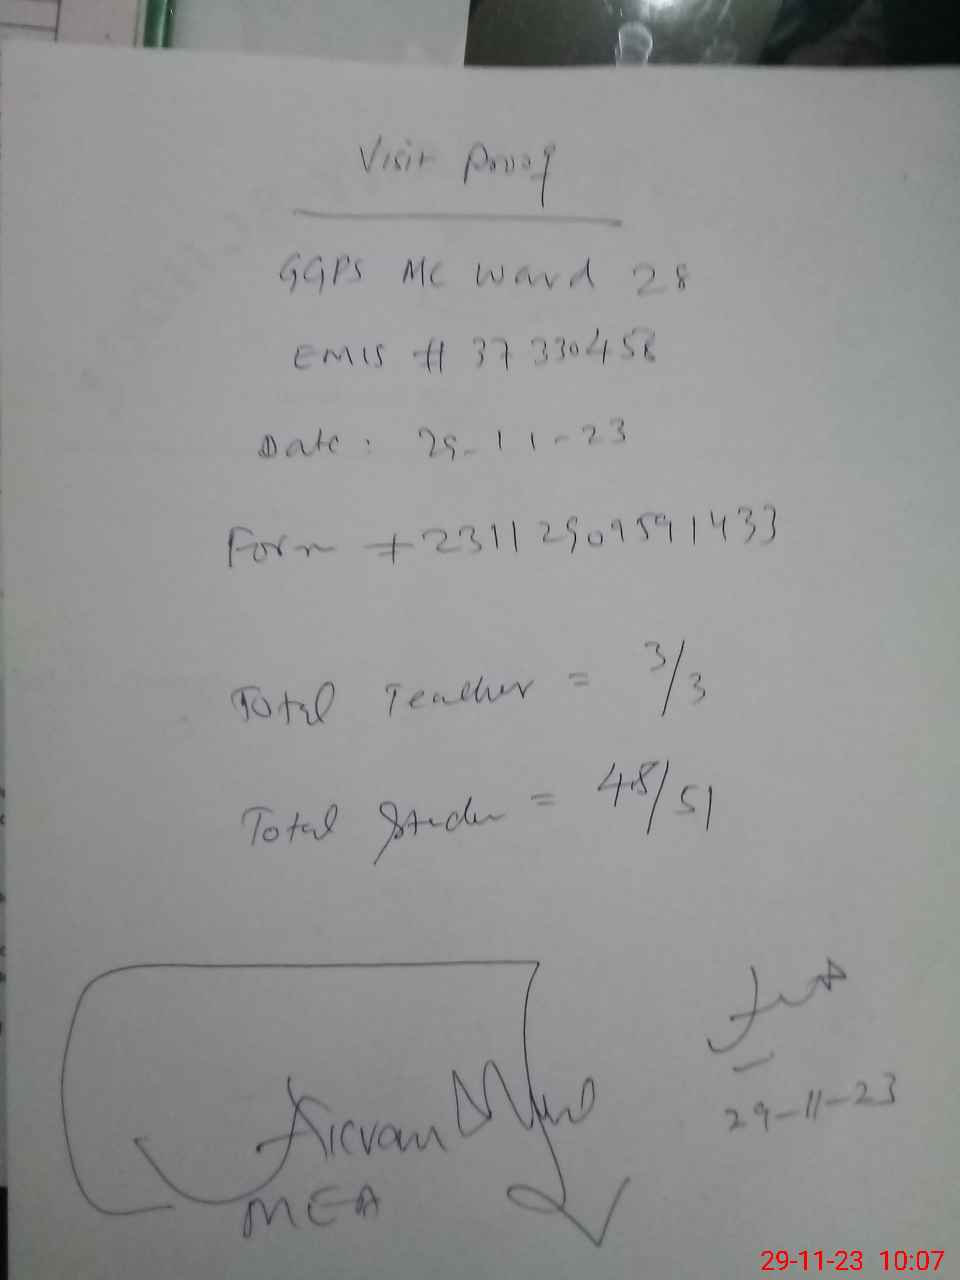 Visit Proof
GGPS MC Ward 28
EMIS # 37330458
Date: 29-11-23
Form # 231129091591433
Total Teacher = 3/3
Total = 48/51
MEA
29-11-23
29-11-23 10:07